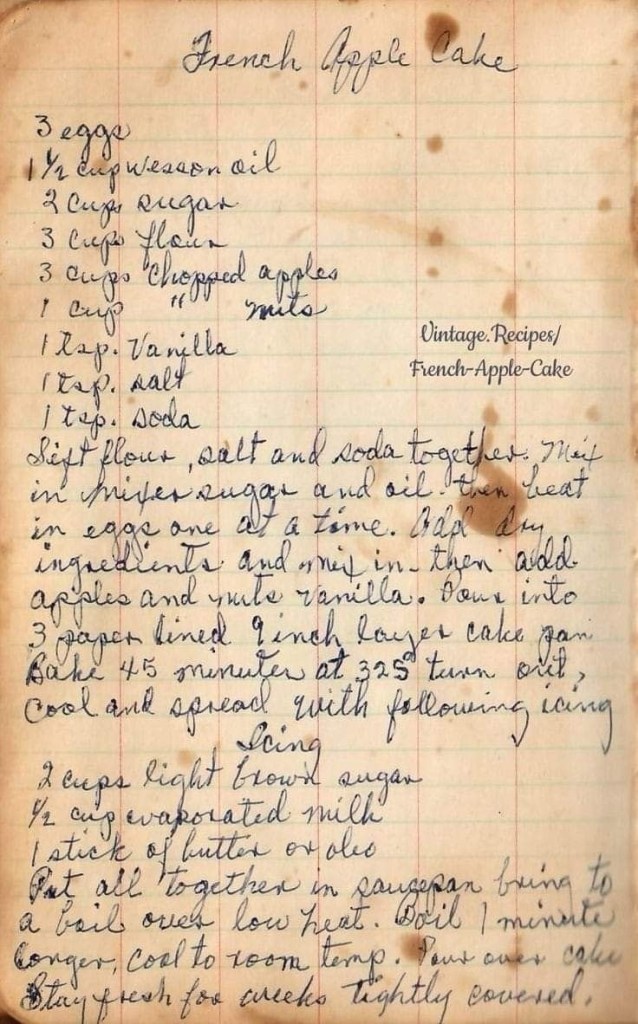 French Apple Cake
3 eggs
1 1/2 cup wesson oil
2 cups sugar
3 cups flour
3 cups Chopped apples
1 cup " nuts
1 tsp. Vanilla
1 tsp. salt
1 tsp. soda
Vintage.Recipes/
French-Apple-Cake
Sift flour, salt and soda together. Mix
in mixer sugar and oil. then beat
in eggs one at a time. Add dry
ingredients and mix in. then add
apples and nuts vanilla. Pour into
3 paper lined 9 inch layer cake pan
Bake 45 minutes at 325° turn out,
Cool and spread with following icing
Icing
2 cups light brown sugar
1/2 cup evaporated milk
1 stick of butter or oleo
Put all together in saucepan bring to
a boil over low heat. Boil 1 minute
longer, cool to room temp. Pour over cake
Stay fresh for weeks tightly covered.